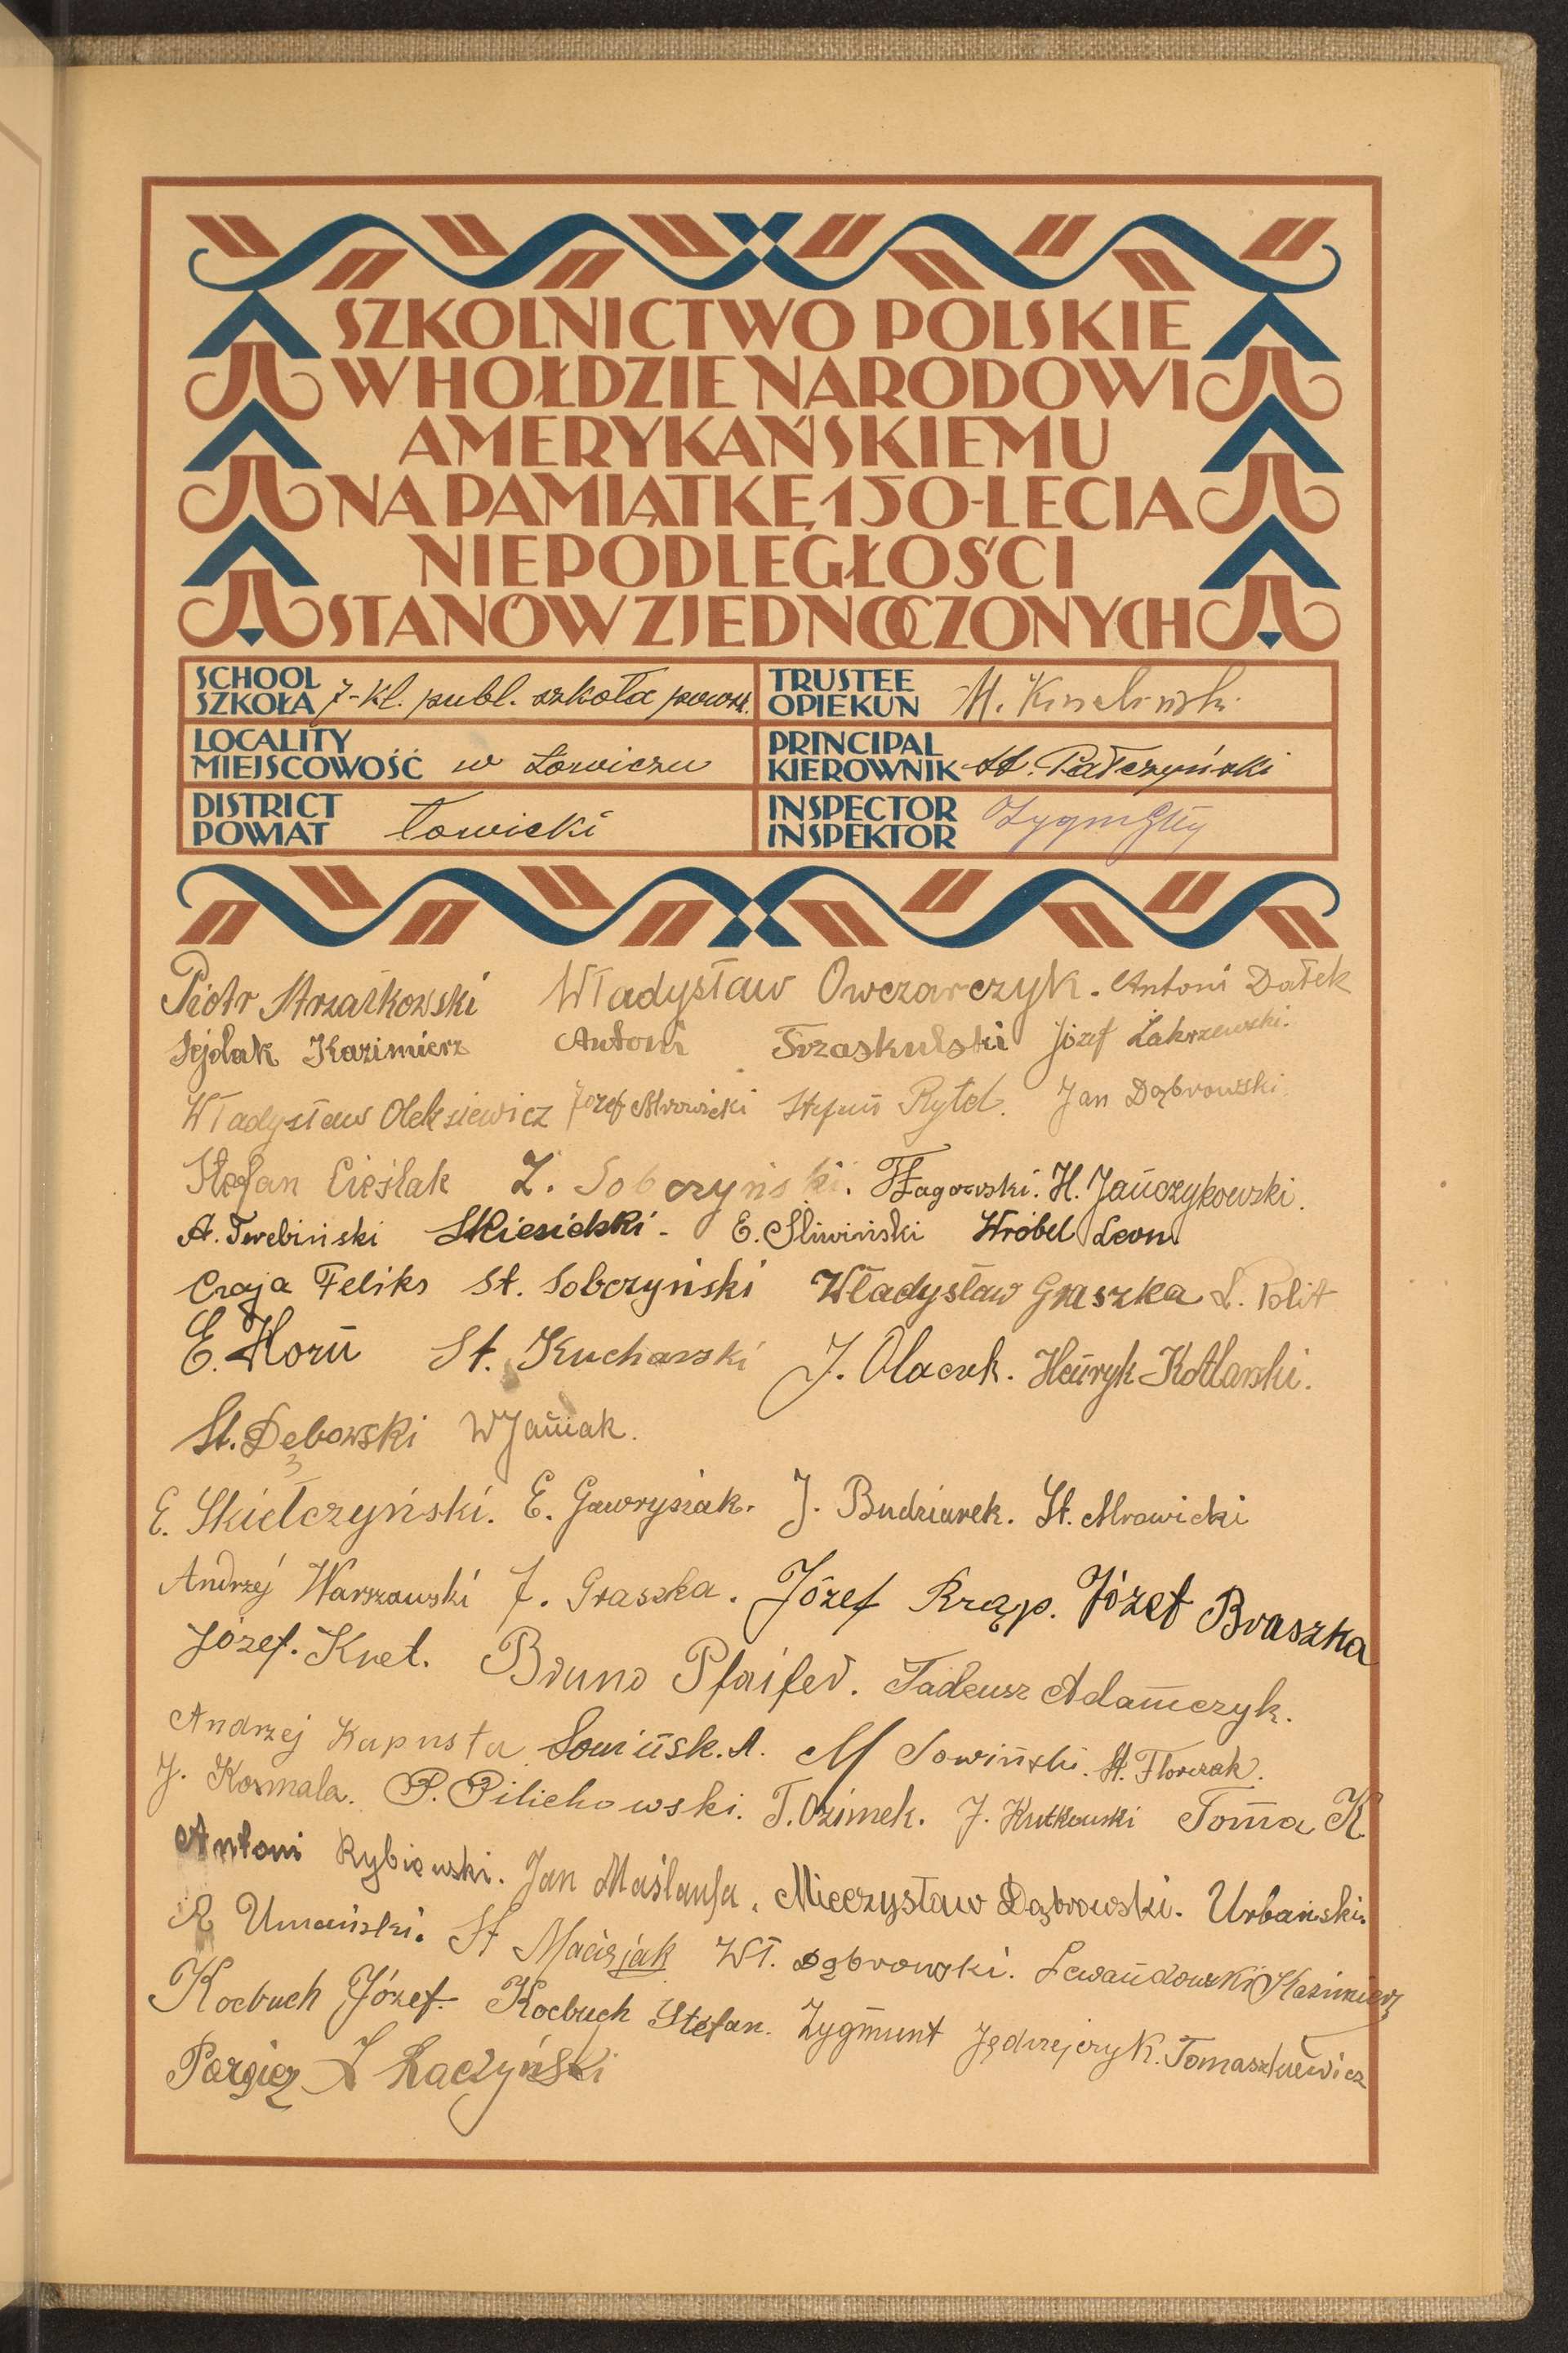 SZKOLNICTWO POLSKIE
W HOŁDZIE NARODOWI
AMERYKAŃSKIEMU
NA PAMIĄTKĘ 150-LECIA
NIEPODLEGŁOŚCI
STANÓW ZJEDNOCZONYCH
SCHOOL
SZKOŁA 7-kl. publ. szkoła powsz.
TRUSTEE
OPIEKUN M.
LOCALITY
MIEJSCOWOŚĆ w Łowiczu
PRINCIPAL
KIEROWNIK St. Pałczyński
DISTRICT
POWIAT Łowicki
INSPECTOR
INSPEKTOR
Piotr Strzałkowski Władysław Owczarczyk. Antoni Dałek
Sejdak Kazimierz Antoni Trzaskulski Józef Zakrzewski.
Władysław Oleksiewicz Józef Mrowicki Stefan Rytel. Jan Dąbrowski
Stefan Cieślak Z. Sobczyński. H. Jańczykowski.
A. Trebiński E. Śliwiński Wróbel Leon
Czaja Feliks St. Sobczyński Władysław Graszka L. Polit
E. Horn St. Kucharski J. Olaczek. Henryk Kotlarski.
St. Dębowski W Janiak.
E. Skiełczyński. E. Gawrysiak. J. Budziarek. St. Mrowicki
Andrzej Warszawski J. Graszka. Józef Krząp. Józef Braszka
Józef. Knet. Bruno Pfaifer. Tadeusz Adamczyk.
Andrzej Kapusta Sowińsk. A. M Sowiński. St. Florczak.
J. Kosmala. P. Pilichowski. T. Ozimek. J. Kutkowski Toma K
Antoni Rybiewski. Jan Maślanka. Mieczysław Dąbrowski. Urbański.
R Umański. St Maciejak Wł. Dąbrowski. Lewandowski Kazimierz
Kocbuch Józef. Kocbuch Stefan. Zygmunt Jędrzejczyk. Tomaszkiewicz
Pargiez Z Łączyński